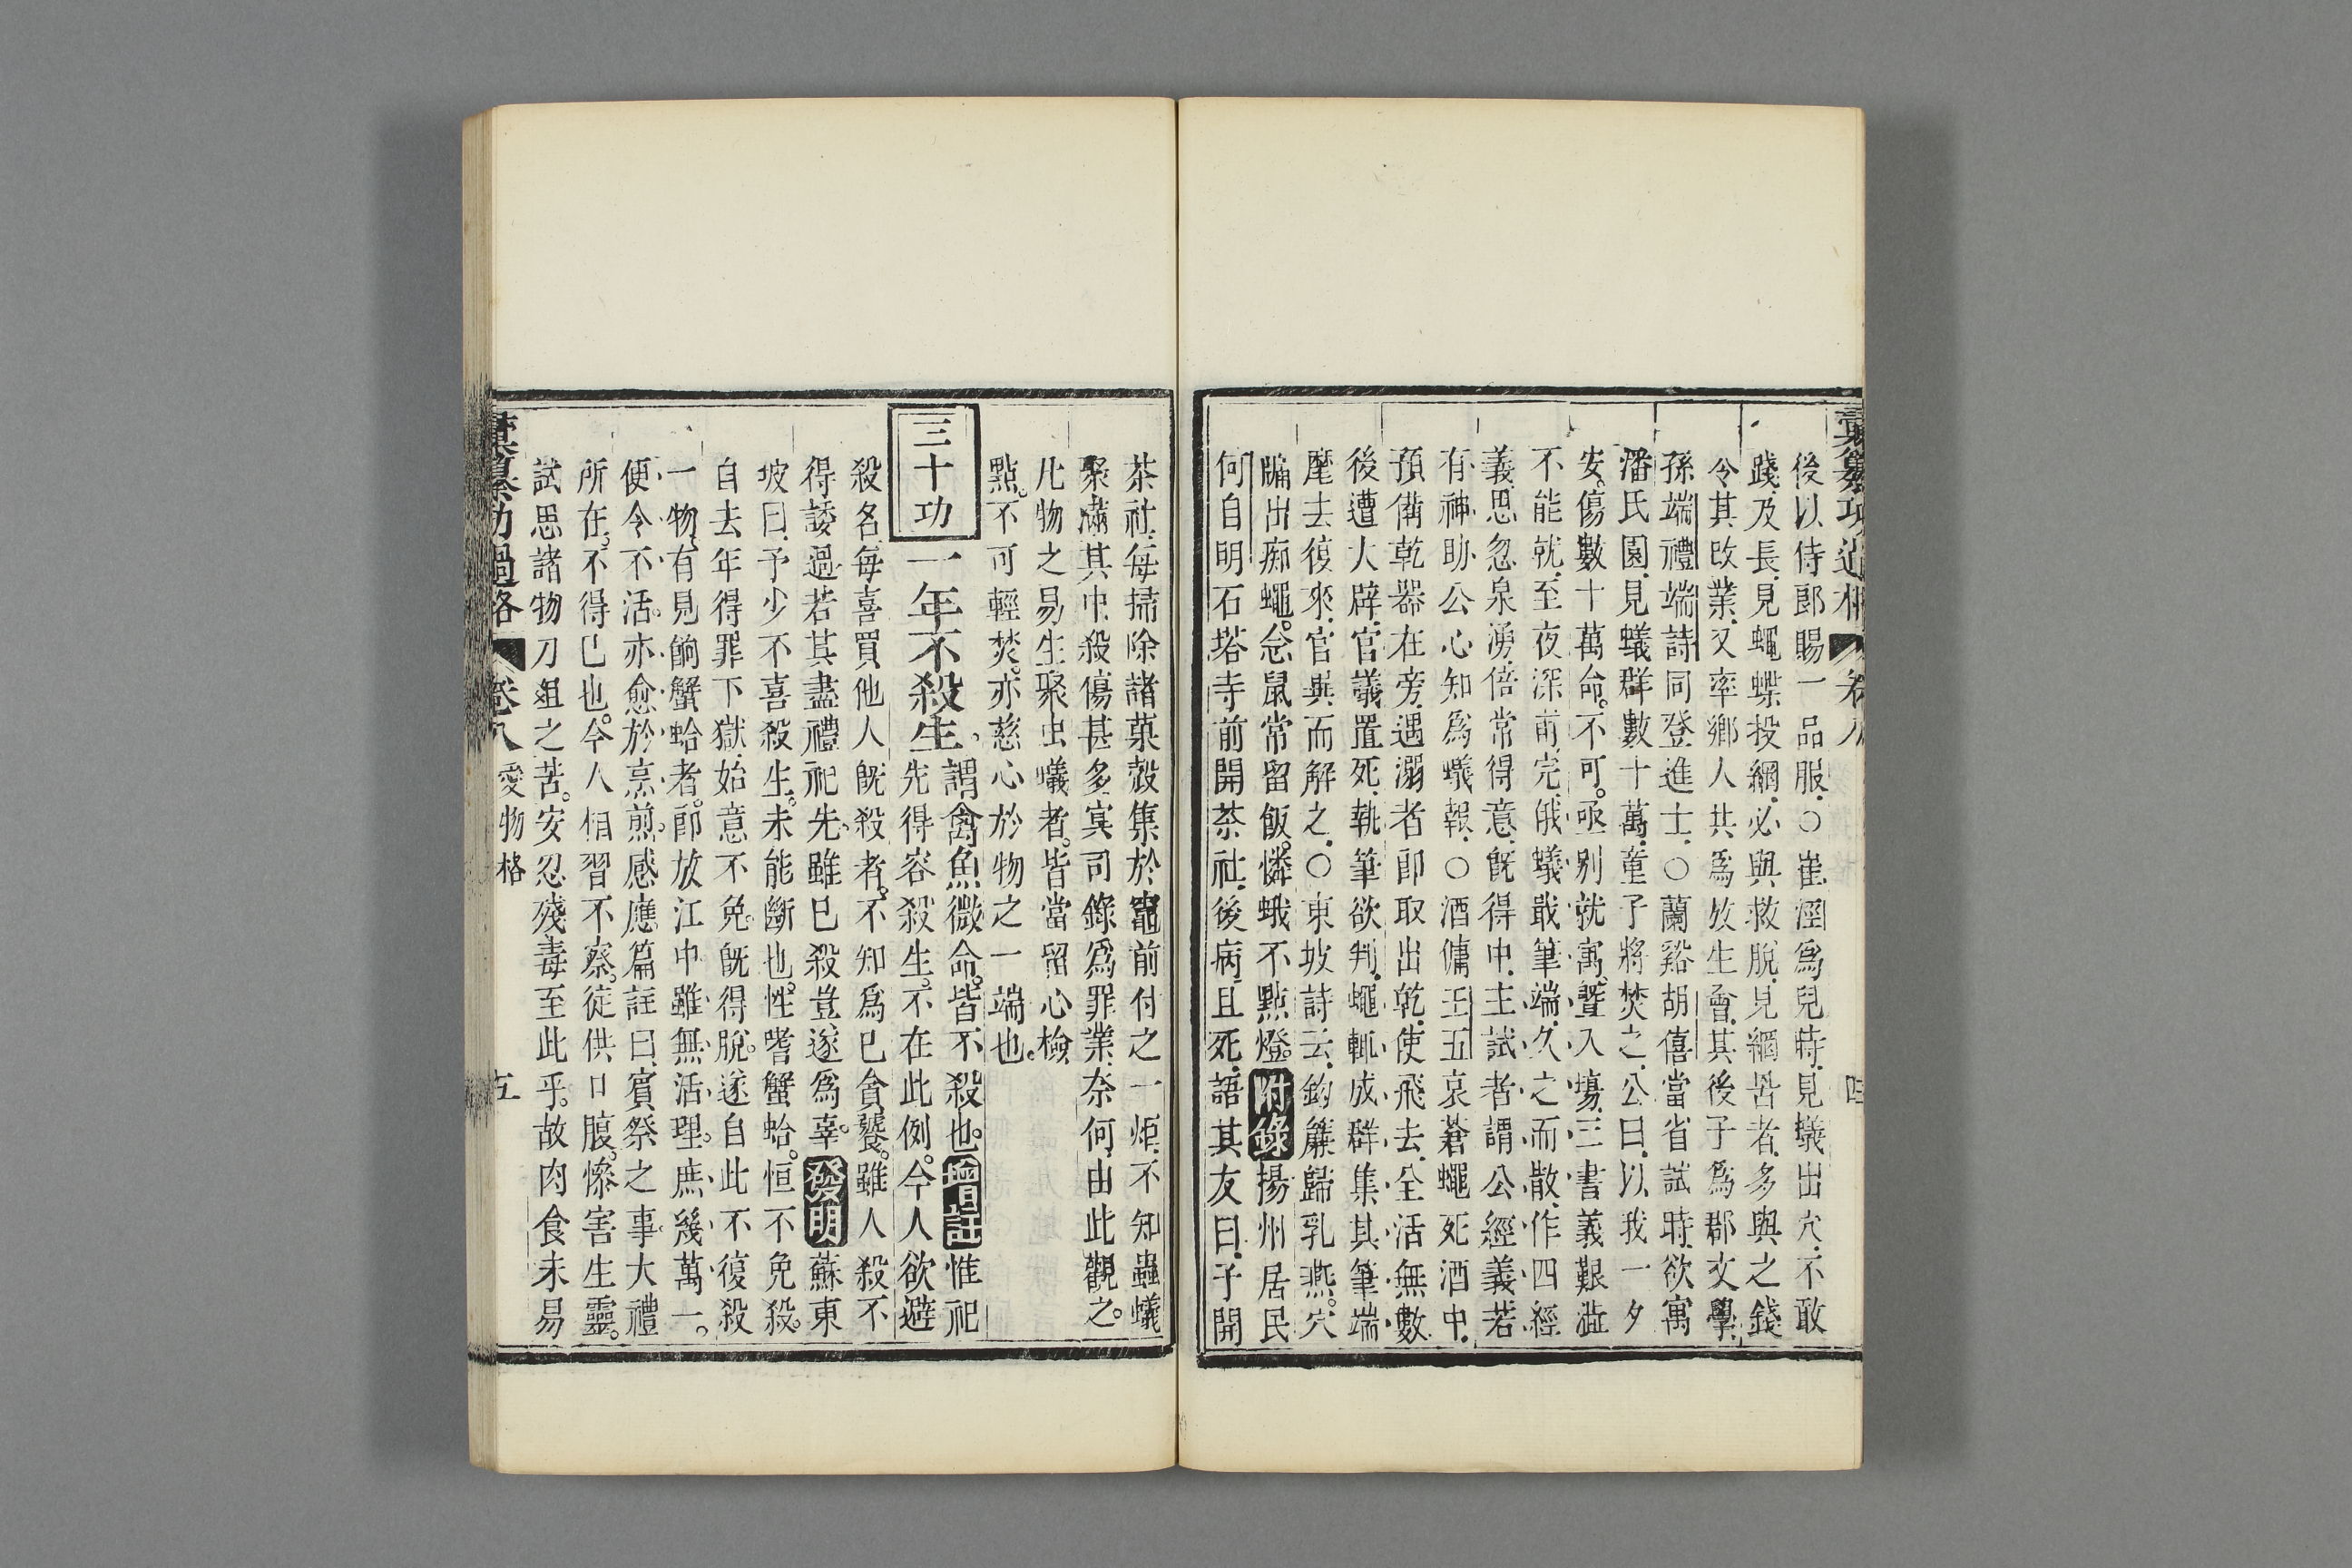 彙纂功過格 卷八 四
後以侍郎賜一品服○崔涇爲兒時見蟻出穴不敢
踐及長見蠅蝶投網必與救脫見網罟者多與之錢
令其改業又率鄉人共爲放生會其後子爲郡文學
孫端禮端詩同登進士○蘭谿胡僖當省試時欲寓
潘氏園見蟻群數十萬童子將焚之公曰以我一夕
安傷數十萬命不可亟別就寓曁入塲三書義艱澁
不能就至夜深前完俄蟻戢筆端久之而散作四經
義思忽泉湧倍常得意旣得中主試者謂公經義若
有神助公心知爲蟻報○酒傭王五哀蒼蠅死酒中
預備乾器在旁遇溺者卽取出乾使飛去全活無數
後遭大辟官議置死執筆欲判蠅輒成群集其筆端
麾去復來官異而解之○東坡詩云鈎簾歸乳燕穴
牖出痴蠅爲鼠常留飯憐蛾不點燈附錄揚州居民
何自明石塔寺前開茶社後病且死語其友曰予開
茶社每掃除諸菓殼集於竈前付之一炬不知蟲蟻
聚滿其中殺傷甚多冥司錄爲罪業奈何由此觀之
凡物之易生聚虫蟻者皆當留心檢
點不可輕焚亦慈心於物之一端也
三十功 一年不殺生謂禽魚微命皆不殺也增註惟祀
先得容殺生不在此例今人欲避
殺名每喜買他人旣殺者不知爲已貪饕雖人殺不
得諉過若其盡禮祀先雖已殺豈遂爲辜發明蘇東
坡曰予少不喜殺生未能斷也性嗜蟹蛤恒不免殺
自去年得罪下獄始意不免旣得脫遂自此不復殺
一物有見餉蟹蛤者卽放江中雖無活理庶幾萬一
便令不活亦愈於烹煎感應篇註曰賓祭之事大禮
所在不得已也今人相習不察徒供口腹慘害生靈
試思諸物刀俎之苦安忍殘毒至此乎故肉食未易
彙纂功過格 卷八 愛物格 五